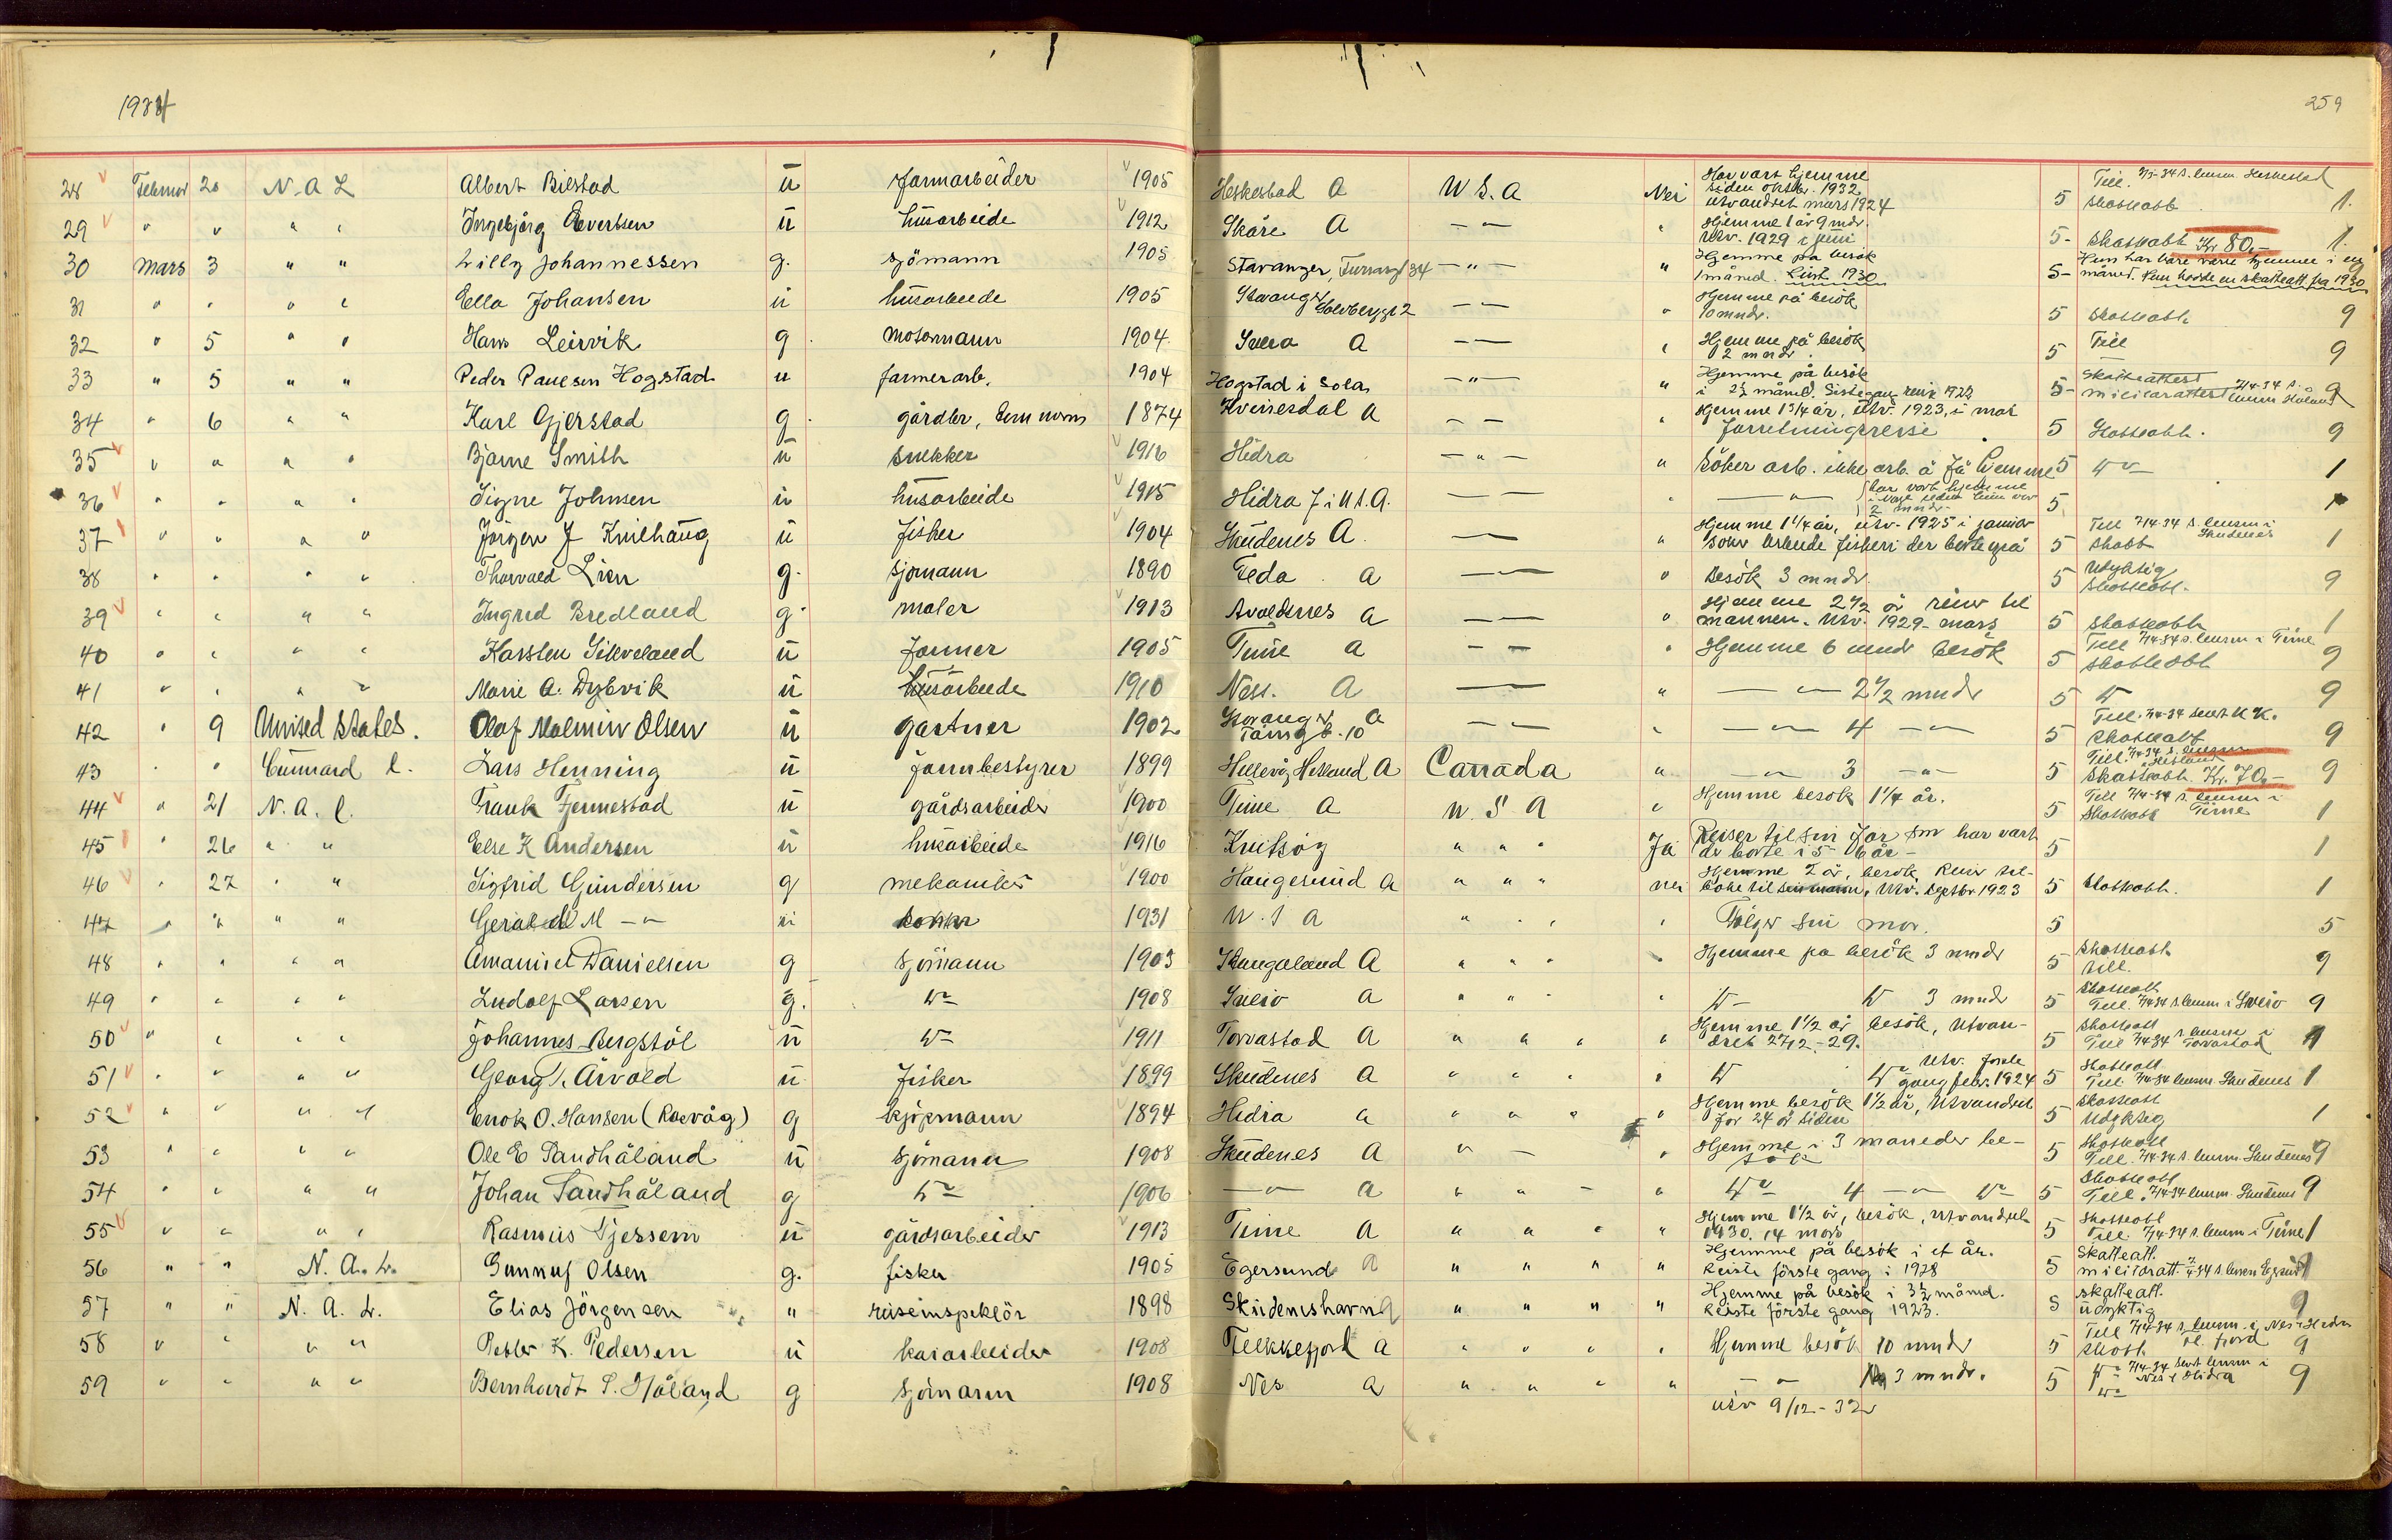 1934
259
28 Februar 20 N. A L Albert Bilstad u farmarbeider 1905 Heskestad A U.S.A Nei Har vært hjemme siden oktbr. 1932 utvandret mars 1924 5 Till. s. lensm. Heskestad skatteatt. 1.
29 " " " " Ingebjørg Evertsen u husarbeide 1912 Skåre A — " — " Hjemme 1 år 9 mdr. utv. 1929 i juni 5 - skatteatt Kr 80.- 1.
30 mars 3 " " Willy Johannessen g. sjömann 1905 Stavanger, 34 — " — " Hjemme på besök 1 måned. Siste 1930 5 - Hun har bare være hjemme i en måned. Hun hadde en skatteatt fra 1930 9
31 " " " " Ella Johansen u husarbeide 1905 Stavanger 2 — " — " Hjemme på besök 10 mndr. 5 skatteatt. 9
32 " 5 " " Hans Leirvik g. motormann 1904 Sveio A — " — " Hjemme på besök 2 mndr. 5 Till 9
33 " 5 " " Peder Paulsen Hogstad u farmerarb. 1904 Hogstad i Sola — " — " Hjemme på besök i 2½ måned. 5 - Skatteattest militærattest 7/4-34 s. lensm Håland 9
34 " 6 " " Karl Gjerstad g. gårdbr, 1874 Kvinesdal A — " — " Hjemme 1 3/4 år, utv. 1923, i mai Forretningsreise 5 Skatteatt. 9
35 " " " " Bjarne Smith u snekker 1916 Hidra — " — " Söker arb. ikke arb. å få hjemme 5 1
36 " " " " Signe Johnsen u husarbeide 1915 Hidra f i U.S.A. — " — " — " — har vært hjemme 5 1
37 " " " " Jörgen J Knilhaug u fisker 1904 Skudenes A. — " — " Hjemme 1 1/4 år, utv. 1925 i januar söker arbeide fisheri der borte også 5 Till 7/4-34 s. lensm i Skudenes skatt 1
38 " " " " Thorvald Lien g. sjömann 1890 Feda A — " — " Besök 3 mndr 5 Udyktig skatteatt. 9
39 " " " " Ingrid Bredland g. maler 1913 Avaldsnes A — " — " Hjemme 2½ år reiser til mannen. Utv. 1929 - mars 5 skatteatt 1
40 " " " " Karsten Sikveland u farmer 1905 Time A — " — " Hjemme 6 mndr besök 5 Till 7/4-34 s. lensm i Time skatteatt 9
41 " " " " Marie A. Dybvik u husarbeide 1910 Ness. A — " — " — " — 2½ mndr 5 9
42 " 9 United States. Olaf Malmin Olsen u gartner 1902 Stavanger A 10 — " — " — " — 4 — " — 5 Till. 7/4-34 skatteatt 9
43 " " Cunnard L. Lars Henning u farmbestyrer 1899 Helland A Canada " — " — 3 — " — 5 Till. 7/4-34 s. lensm skatteatt. Kr. 70.- 9
44 " 21 N. A. L. Frank Fjermestad u gårdsarbeider 1900 Time A U. S A " Hjemme besök 1 1/4 år. 5 Till 7/4-34 s. lensm i Time Skatteatt 1
45 " 26 " " Else K Andersen u husarbeide 1916 Kvitsøy " " " Ja Reiser til sin far som har vært der borte i 5-6 år - 5 1
46 " 27 " " Sigfrid Gundersen g mekaniker 1900 Haugesund A " " " nei Hjemme 2 år, besök Reiser til- bake til Utv. septbr 1923 5 Skatteatt. 1
47 " " " " Gerald M — " — u 1931 U. S A " " " " Fölger sin mor. 5 5
48 " " " " Amaniel Danielsen g sjömann 1903 A " " " " Hjemme på besök 3 mndr 5 skatteatt. till. 9
49 " " " " Ludolf Larsen g. 1908 Sveio A " " " " 3 mndr 5 Skatteatt Till. 7/4-34 s. lensm i Sveio 9
50 " " " " Johannes Bergstöl u 1911 Torvastad A " " " " Hjemme 1½ år besök, Utvan- dret 27/12 - 29. 5 skatteatt Till 7/4-34 s. lensm i Torvastad 1
51 " " " " Georg T. Årvold u fisker 1899 Skudenes A " " " " utv. förste gang febr. 1924 5 Skatteatt Till. 7/4-34 lensm. Skudenes 1
52 " " " " Enok O. Hansen (Rasvåg) g kjöpmann 1894 Hidra A " " " " Hjemme besök 1½ år, Utvandret for 24 år siden 5 skatteatt Udyktig 1
53 " " " " Ole E Sandhåland u sjömann 1908 Skudenes A " — " Hjemme i 3 måneder be- sök 5 Skatteatt Till. 7/4-34 s. lensm. Skudenes 9
54 " " " " Johan Sandhåland g 1906 — " — A " " — " 4 — " — 5 Skatteatt Till. 7/4-34 lensm. Skudenes 9
55 " " " " Rasmus Gjessem u gårdsarbeider 1913 Time A " " " " Hjemme 1½ år, besök, Utvandret 1930. 14 mars 5 Skatteatt Till. 7/4-34 s. lensm i Time 1
56 " " N. A. L. Gunnuf Olsen g. fisker 1905 Egersund A " " " " Hjemme på besök i et år. Reiste förste gang i 1928 5 Skatteatt. militäratt. 7/4-34 s. lensm Egersund 1
57 " " N. A. L. Elias Jörgensen " reiseinspektör 1898 Skudeneshavn A " " " " Hjemme på besök i 3½ måned. Reiste förste gang 1923. 5 skatteatt. udyktig 9
58 " " " " Petter K. Pedersen u kaiarbeider 1908 Flekkefjord A " " " " Hjemme besök 10 mndr 5 Till 7/4-34 s. lensm. i Nes i Hidra skatt 9
59 " " " " Bernhardt S. Håland g sjömann 1908 Nes A " " " " — " — 3 mndr. utv 9/12 - 32 5 7/4-34 lensm i Nes i Hidra 9